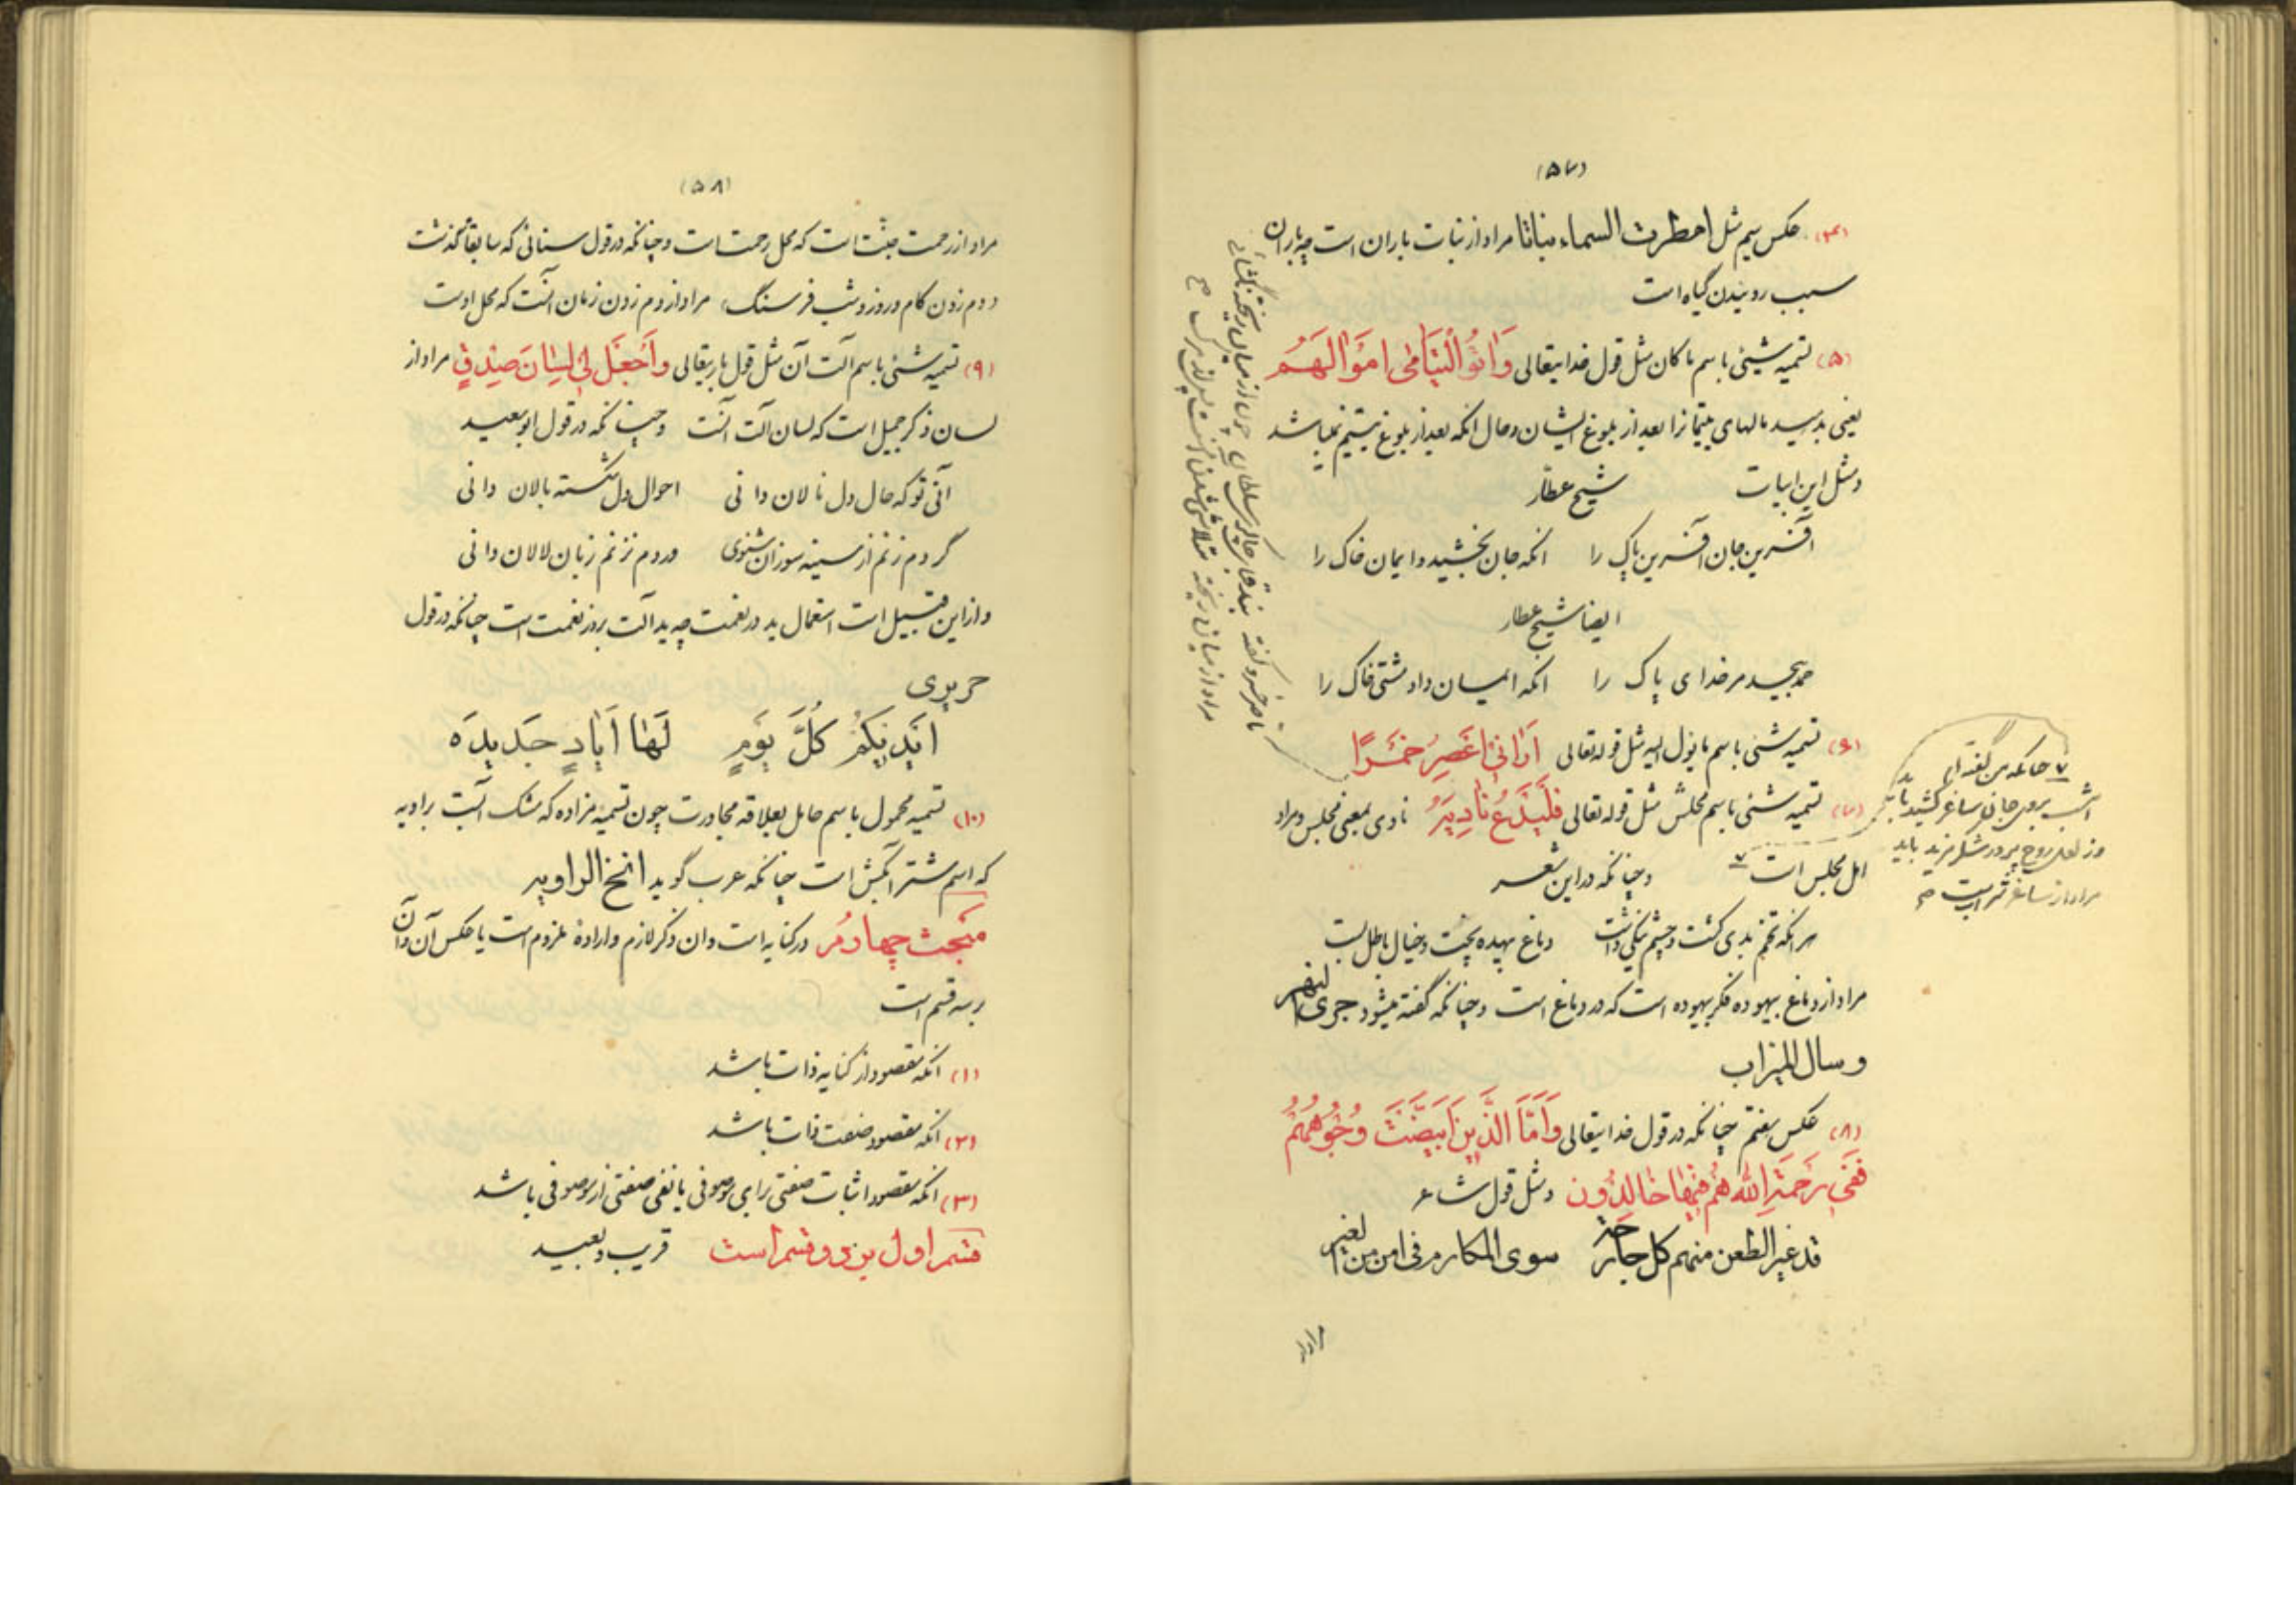 (۵۷)
(۴) عکس سیم مثل امطرت السماء نباتا مراد از نبات باران است چه باران
سبب روئیدن گیاه است
(۵) تسمیه شیئی باسم ماکان مثل قول خدایتعالی وَاتُوالْیَتَامٰی اموَالَهُم
یعنی بدهید مالهای یتیمانرا بعد از بلوغ ایشان و حال آنکه بعد از بلوغ یتیم نمیباشد
و مثل این ابیات شیخ عطار
آفرین جان آفرین پاک را آنکه جان بخشید و ایمان خاک را
ایضا شیخ عطار
حمد بیحد مر خدای پاک را آنکه ایمان داد مشتی خاک را
(۶) تسمیه شئی باسم مایؤل الیه مثل قوله تعالی اَرٰانی اَعصِرُ خَمْرًا
(۷) تسمیه شئی باسم محلش مثل قوله تعالی فَلْیَدْعُ نادِیَهُ نادی بمعنی مجلس و مراد
اهل مجلس است ۷ و چنانکه در این شعر
هر آنکه تخم بدی کشت و چشم نیکی داشت دماغ بیهده پخت و خیال باطل بست
مراد از دماغ بیهوده فکر بیهوده است که در دماغ است و چنانکه گفته میشود جری النهر
و سال المیزاب
(۸) عکس هفتم چنانکه در قول خدایتعالی وَاَمَّا الَّذینَ ابْیَضَّتْ وُجُوهُهُمْ
فَفی رَحْمَةِ اللّه هُمْ فیها خالِدُون و مثل قول شاعر
قد غیر الطعن منهم کل جارحة سوی المکارم فی امن من الغیر
مراد از
ناصر خسرو گفته
۷ چنانکه من گفته‌ام
امشب بروی جانان ساغر کشید باید
وز لعل روح پرور شکر مزید باید
مراد از ساغر شراب است
(۵۸)
مراد از رحمت جنت است که محل رحمت است و چنانکه در قول سنائی که سابقا گذشت
دم زدن کام و روز و شب فرسنگ مراد از دم زدن زمان آنست که محل اوست
(۹) تسمیه شئی باسم آلت آن مثل قول باریتعالی واَجْعَل لی لِسٰانَ صِدْقٍ مراد از
لسان ذکر جمیل است که لسان آلت آنست و چنانکه در قول ابو سعید
آنی تو که حال دل نالان دانی احوال دل شکسته بالان دانی
گر دم زنم از سینه سوزان شنوی ور دم نزنم زبان لالان دانی
و از این قبیل است استعمال ید در نعمت چه ید آلت بروز نعمت است چنانکه در قول
حریری
ایدیکُم کُلَّ یَومٍ لَها اَیادٍ جَدیدَه
(۱۰) تسمیه محمول باسم حامل بعلاقه مجاورت چون تسمیه مزاده که مشک آبست براویه
که اسم شتر آبکش است چنانکه عرب گوید انخ الراویه
مَبحث چهارم در کنایه است و آن ذکر لازم و اراده ملزوم است یا عکس آن و آن
بر سه قسم است
(۱) آنکه مقصود از کنایه ذات باشد
(۲) آنکه مقصود صفت ذات باشد
(۳) آنکه مقصود اثبات صفتی برای موصوفی یا نفی صفتی از موصوفی باشد
قسم اول بر دو قسم است قریب و بعید